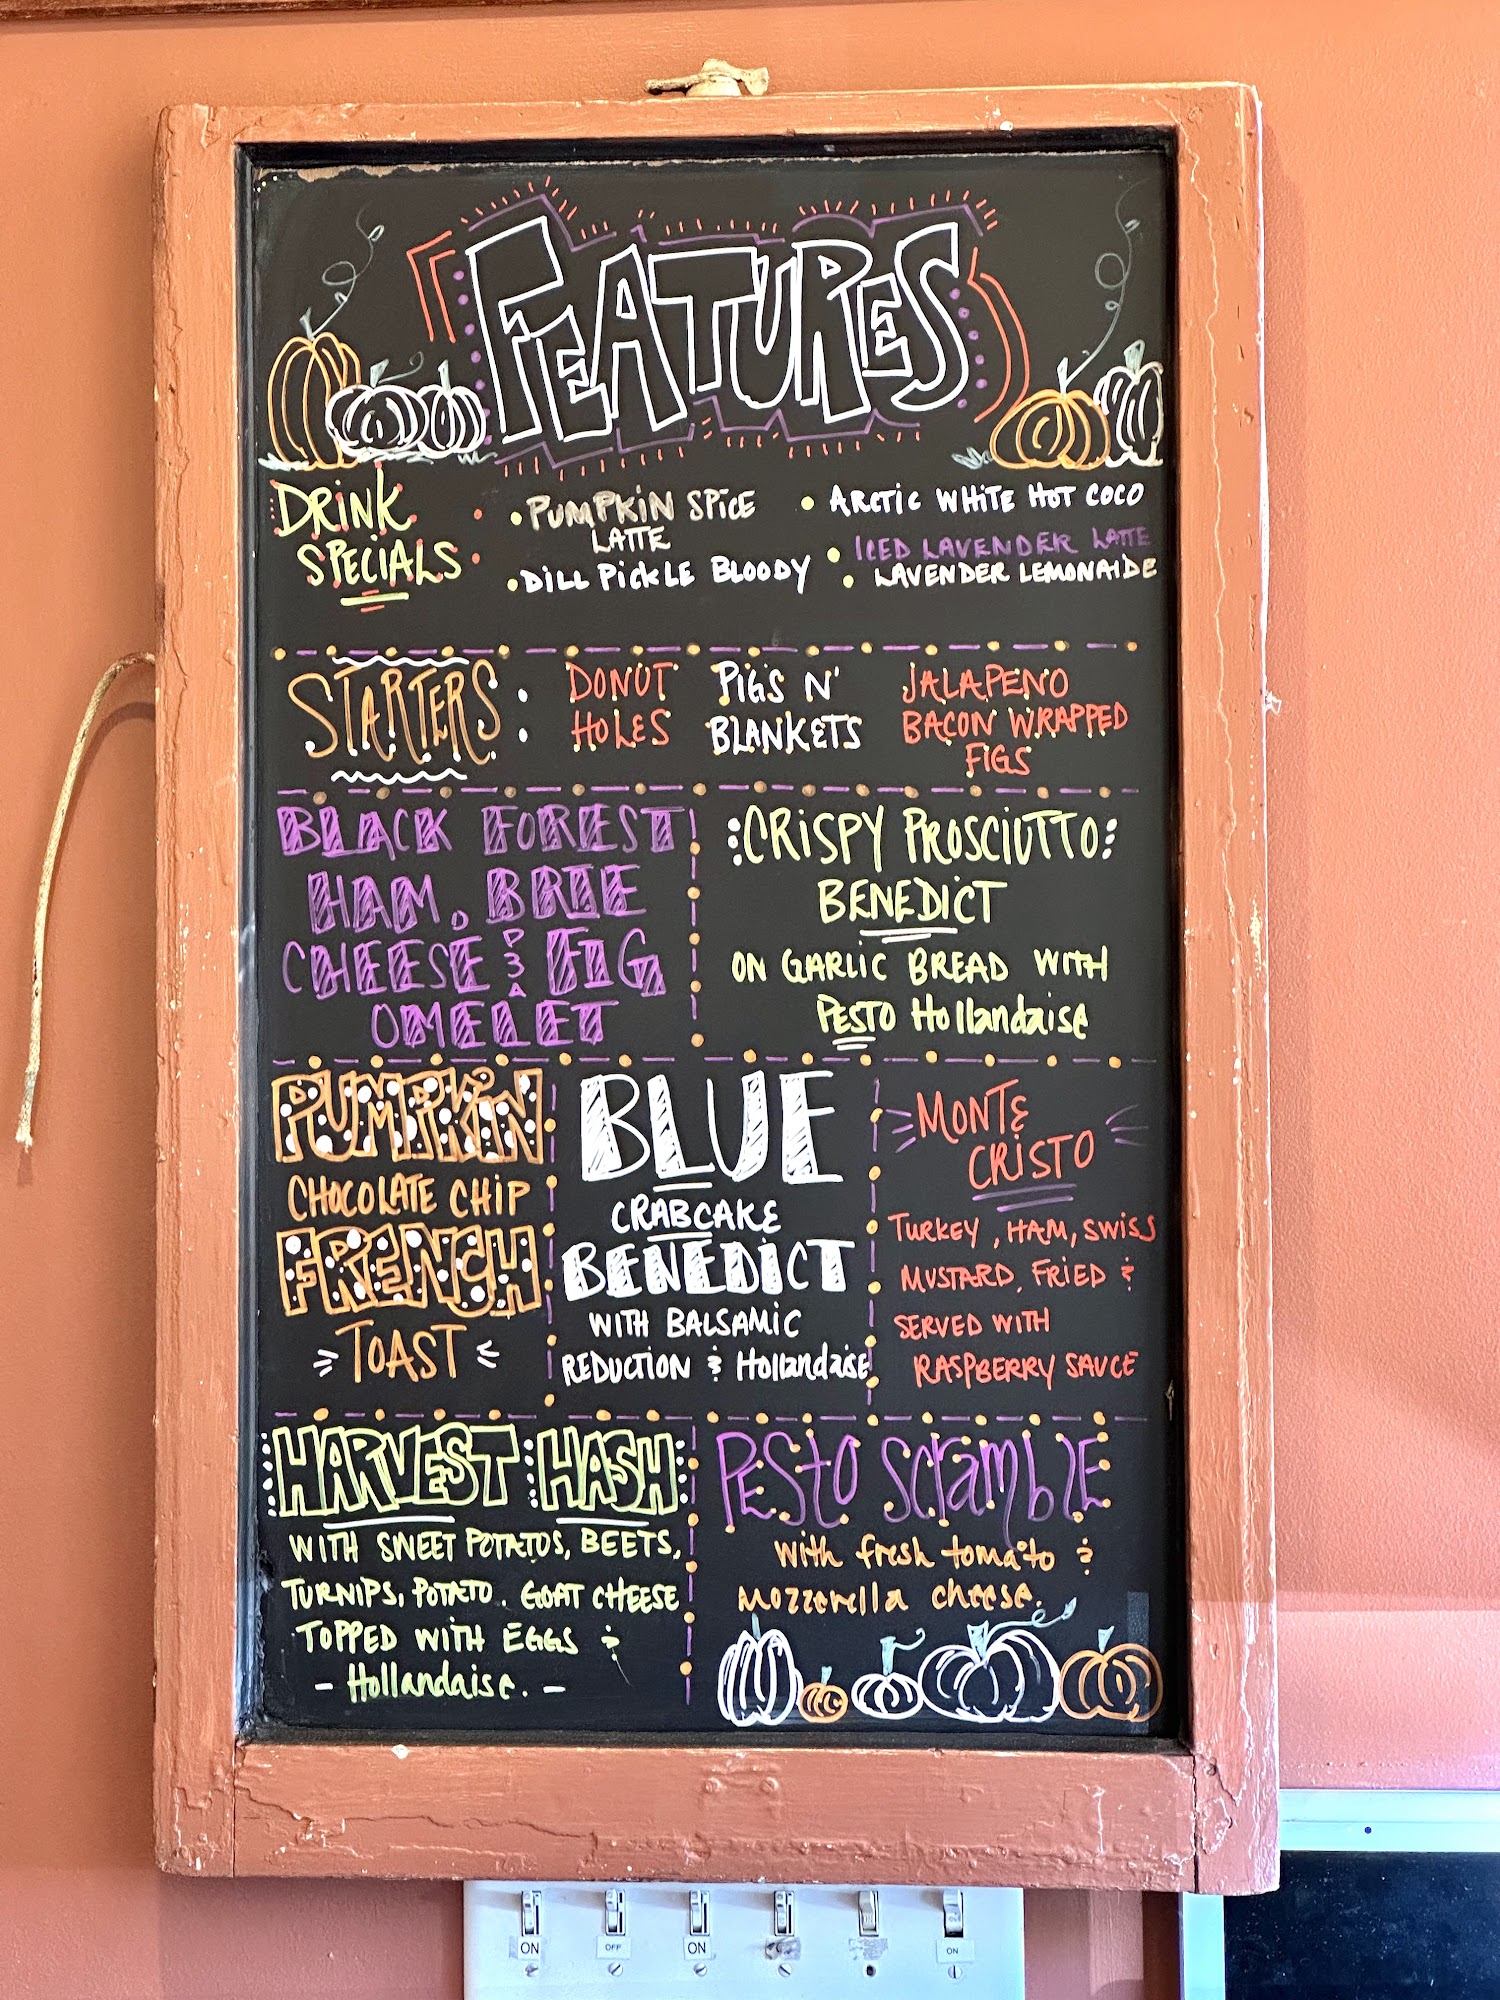 FEATURES
DRINK
SPECIALS
• PUMPKIN SPICE
LATTE
• DILL PICKLE BLOODY
• ARCTIC WHITE HOT COCO
• ICED LAVENDER LATTE
• LAVENDER LEMONAIDE
STARTERS:
DONUT
HOLES
PIGS N'
BLANKETS
JALAPENO
BACON WRAPPED
FIGS
BLACK FOREST
HAM, BRIE
CHEESE & FIG
OMELET
CRISPY PROSCIUTTO
BENEDICT
ON GARLIC BREAD WITH
PESTO Hollandaise
PUMPKIN
CHOCOLATE CHIP
FRENCH
TOAST
BLUE
CRABCAKE
BENEDICT
WITH BALSAMIC
REDUCTION & Hollandaise
MONTE
CRISTO
TURKEY, HAM, SWISS
MUSTARD, FRIED &
SERVED WITH
RASPBERRY SAUCE
HARVEST HASH
WITH SWEET POTATOS, BEETS,
TURNIPS, POTATO. GOAT CHEESE
TOPPED WITH EGGS &
- Hollandaise. -
PESTO SCRAMBLE
with fresh tomato &
mozzerella cheese.
ON
OFF
ON
ON